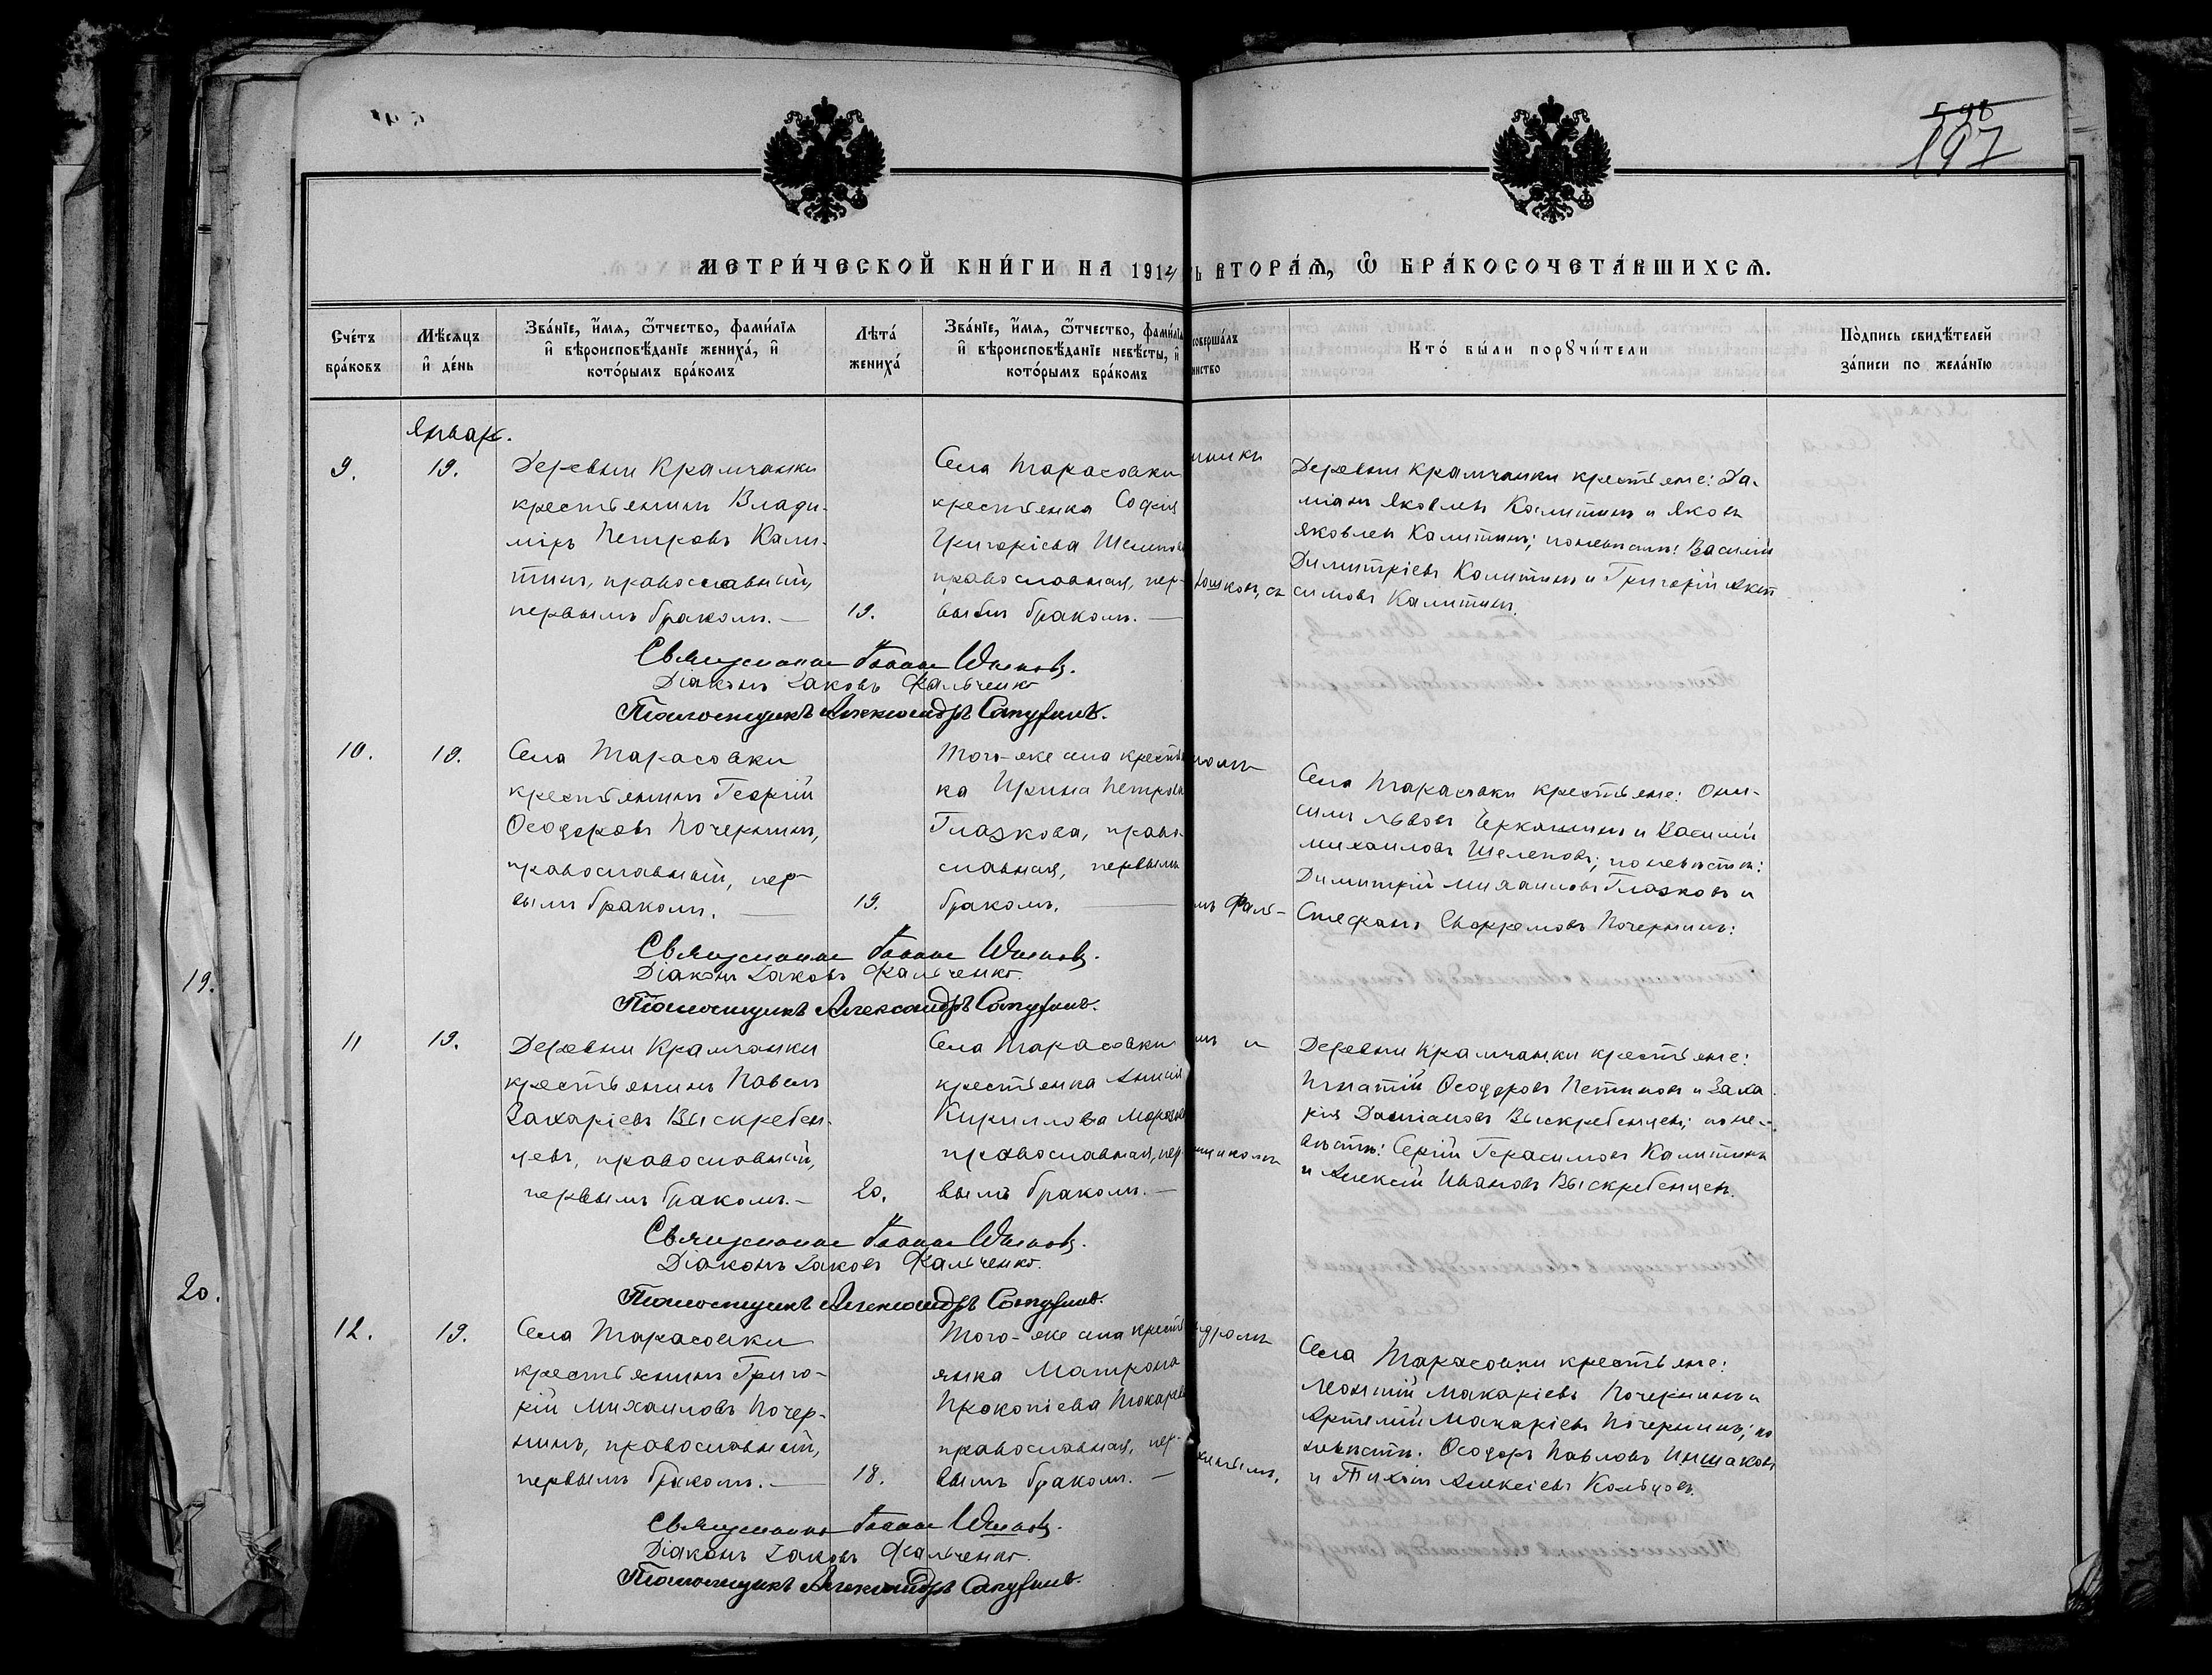 197
МЕТРИ́ЧЕСКОЙ КНИ́ГИ НА 1914
ВТОРА́Ѧ, Ѿ БРА́КОСОЧЕТА́ВШИХСѦ.
Сче́тъ бра́ковъ
Мѣ́сѧцъ и҆ де́нь
Зва́нїе, и҆́мѧ, ѻ҆́тчество, фами́лїѧ и҆ вѣроисповѣ́данїе жениха̀, и҆ кото́рымъ бра́комъ
Лѣта̀ жениха̀
Зва́нїе, и҆́мѧ, ѻ҆́тчество, фами́лїѧ и҆ вѣроисповѣ́данїе невѣ́сты, и҆ кото́рымъ бра́комъ
соверша́лъ
Кто́ бы́ли порꙋчи́тели
По́дпись свидѣ́телей за́писи по жела́нїю
Январ.
9.
19.
Деревни Крамчанки
крестьянинъ Влади-
міръ Петровъ Кали-
тинъ, православный,
первымъ бракомъ.—
19.
Села Тарасовки
крестьянка Софія
Григоріева Шелепова
православная, пер-
вымъ бракомъ.—
Деревни Крамчанки крестьяне: Да-
міанъ Яковлевъ Калитинъ и Яковъ
Яковлевъ Калитинъ; по невѣстѣ: Василій
Димитріевъ Калитинъ и Григорій
симовъ Калитинъ.
Священникъ Іоаннъ
Діаконъ Іаковъ Фальченко
Псаломщикъ Александръ
10.
19.
Села Тарасовки
крестьянинъ Георгій
Ѳеодоровъ Почернинъ,
православный, пер-
вымъ бракомъ.—
19.
Того-же села крестьян
ка Ирина Петрова
Глазкова, право-
славная, первымъ
бракомъ.—
омъ Фаль-
Села Тарасовки крестьяне: Они-
симъ Львовъ и Василій
Михаиловъ Шелеповъ; по невѣстѣ:
Димитрій Михаиловъ Глазковъ и
Стефанъ Почернинъ.
Священникъ Іоаннъ
Діаконъ Іаковъ Фальченко.
Псаломщикъ Александръ
11
19.
Деревни Крамчанки
крестьянинъ Павелъ
Захаріевъ Выскребен-
цевъ, православный,
первымъ бракомъ.—
20.
Села Тарасовки
крестьянка
Кириллова
православная, пер-
вымъ бракомъ.—
Деревни Крамчанки крестьяне:
Игнатій Ѳеодоровъ и Заха-
рія Даміановъ Выскребенцевъ; по не-
вѣстѣ: Сергій Герасимовъ Калитинъ
и Алексій Ивановъ Выскребенцевъ.
Священникъ Іоаннъ
Діаконъ Іаковъ Фальченко.
Псаломщикъ Александръ
12.
19.
Села Тарасовки
крестьянинъ Григо-
рій Михаиловъ Почер-
нинъ, православный,
первымъ бракомъ.—
18.
Того-же села кресть
янка Матрона
Прокопіева Токарева
православная, пер-
вымъ бракомъ.—
Села Тарасовки крестьяне:
Леонтій Макаріевъ Почернинъ и
Артемій Макаріевъ Почернинъ; по
невѣстѣ: Ѳеодоръ Павловъ Иншаковъ
и Тихонъ Алексіевъ Кольцовъ.
Священникъ Іоаннъ
Діаконъ Іаковъ Фальченко.
Псаломщикъ Александръ
19.
20.